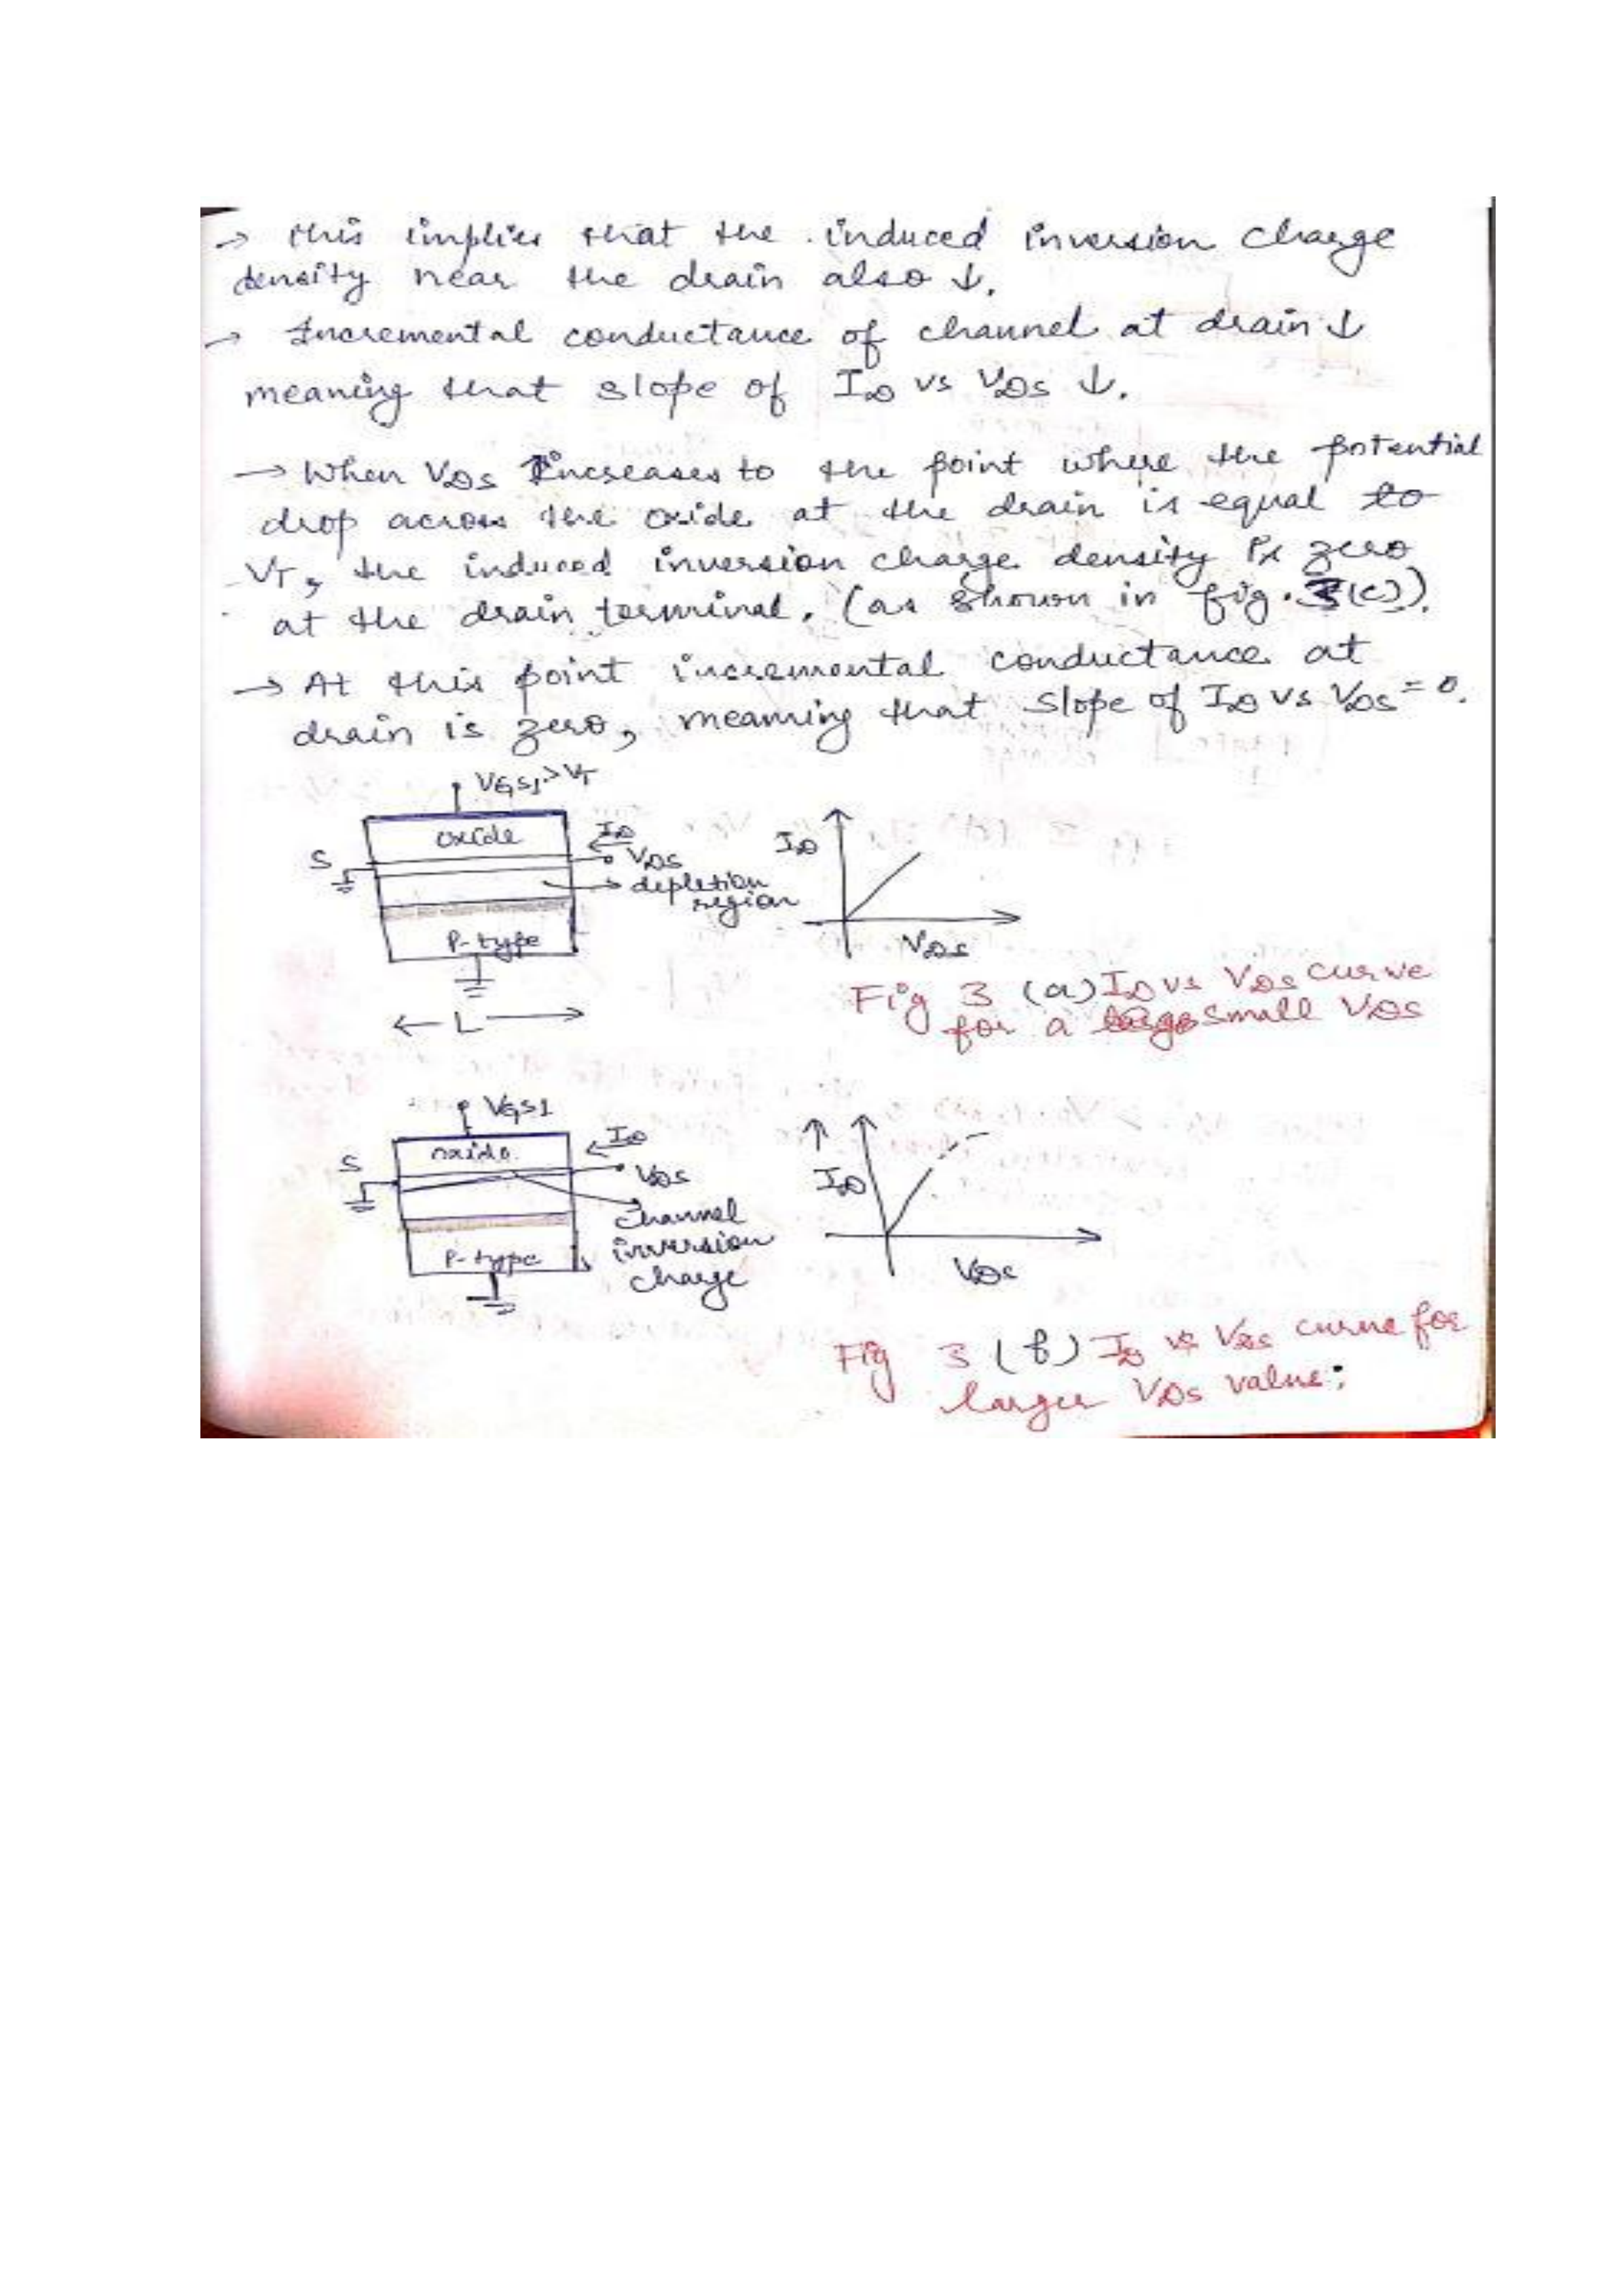 → this implies that the induced inversion charge
density near the drain also ↓.
→ Incremental conductance of channel at drain ↓
meaning that slope of ID vs VDS ↓.
→ When VDS Increases to the point where the potential
drop across the oxide at the drain is equal to
VT, the induced inversion charge density is zero
at the drain terminal. (as shown in fig. 3(c)).
→ At this point incremental conductance at
drain is zero, meaning that slope of ID vs VDS = 0.
VGS1 > VT
oxide
S
ID
VDS
depletion
region
P-type
L
ID
VDS
Fig 3 (a) ID vs VDS curve
for a large small VDS
VGS1
oxide
S
ID
VDS
Channel
inversion
charge
P-type
↑
ID
VDS
Fig 3 (b) ID vs VDS curve for
larger VDS value: